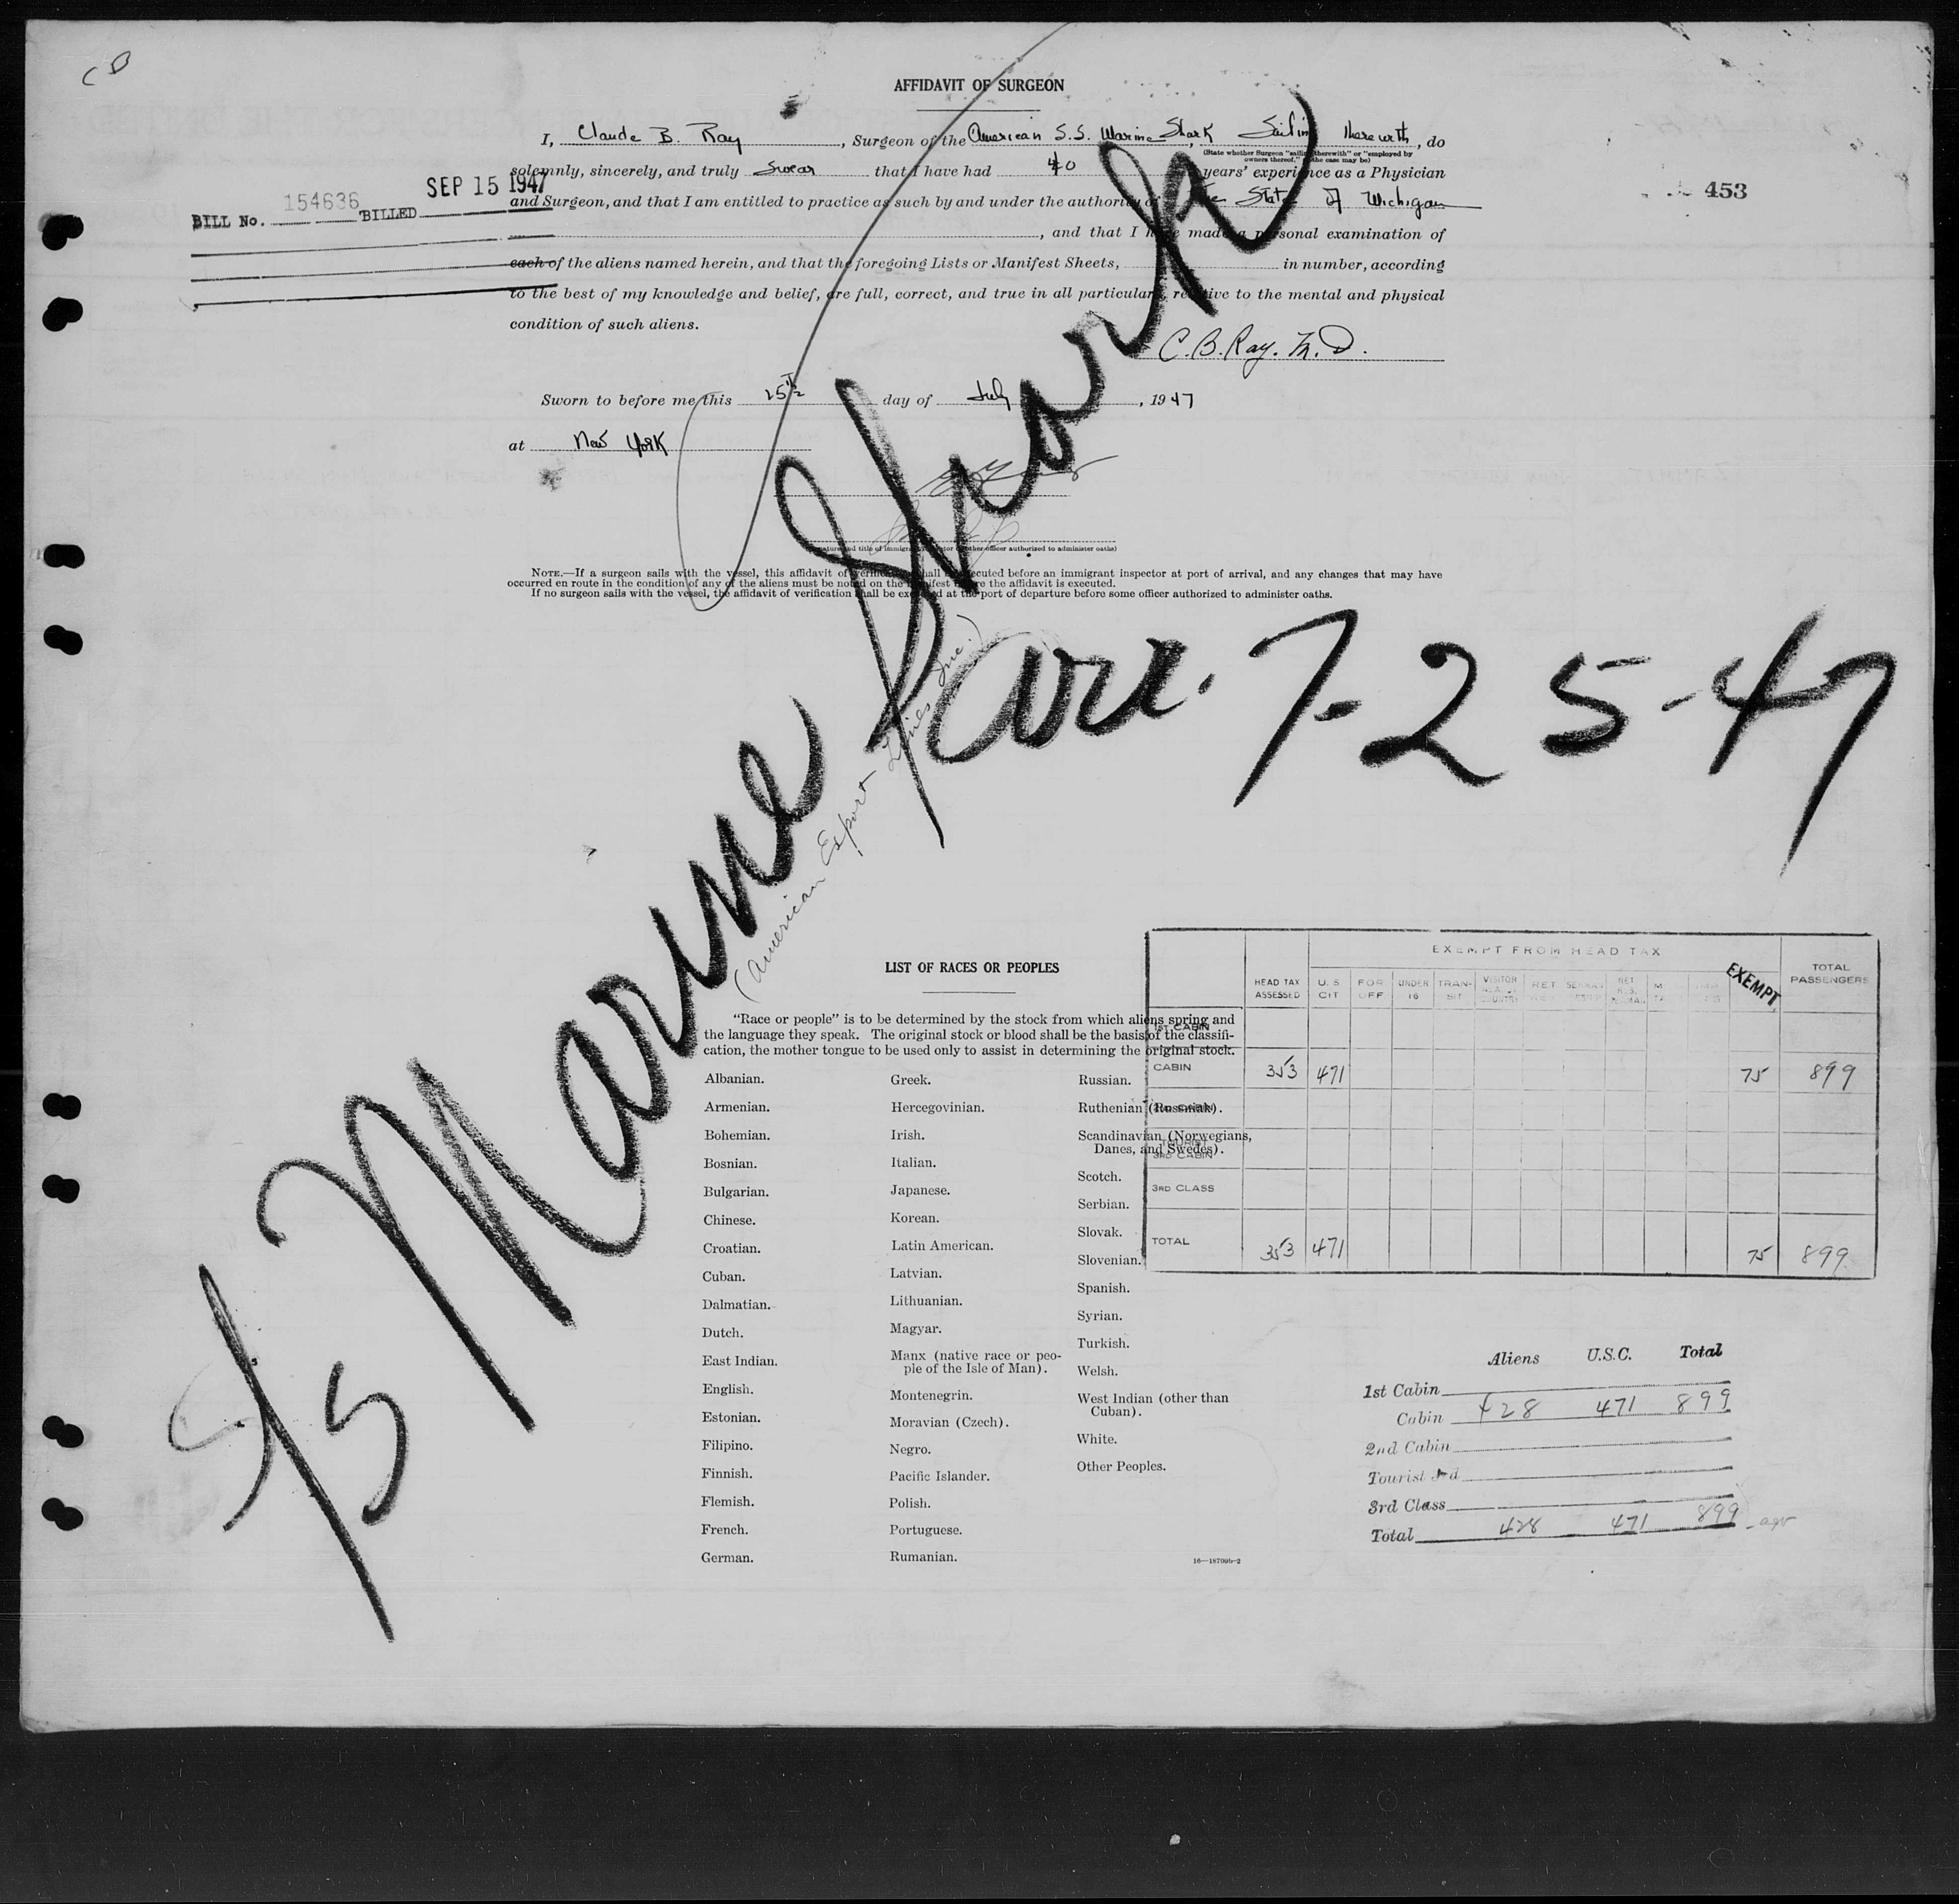 AFFIDAVIT OF SURGEON
I, Claude B. Ray, Surgeon of the American S.S. Marine Shark, Sailing therewith, do
(State whether Surgeon "sailing therewith" or "employed by
owners thereof," as the case may be)
solemnly, sincerely, and truly swear that I have had 40 years' experience as a Physician
and Surgeon, and that I am entitled to practice as such by and under the authority of The State of Michigan
, and that I have made a personal examination of
each of the aliens named herein, and that the foregoing Lists or Manifest Sheets, in number, according
to the best of my knowledge and belief, are full, correct, and true in all particulars relative to the mental and physical
condition of such aliens.
C. B. Ray. M. D.
Sworn to before me this 25th day of July, 1947
at New York
(Signature and title of immigrant inspector or other officer authorized to administer oaths)
NOTE.—If a surgeon sails with the vessel, this affidavit of verification shall be executed before an immigrant inspector at port of arrival, and any changes that may have
occurred en route in the condition of any of the aliens must be noted on the manifest before the affidavit is executed.
If no surgeon sails with the vessel, the affidavit of verification shall be executed at the port of departure before some officer authorized to administer oaths.
BILL No. 154636 BILLED SEP 15 1947
453
S/S Marine Shark
(American Export Lines Inc.)
arr. 7-25-47
LIST OF RACES OR PEOPLES
"Race or people" is to be determined by the stock from which aliens spring and
the language they speak. The original stock or blood shall be the basis of the classifi-
cation, the mother tongue to be used only to assist in determining the original stock.
Albanian.
Armenian.
Bohemian.
Bosnian.
Bulgarian.
Chinese.
Croatian.
Cuban.
Dalmatian.
Dutch.
East Indian.
English.
Estonian.
Filipino.
Finnish.
Flemish.
French.
German.
Greek.
Hercegovinian.
Irish.
Italian.
Japanese.
Korean.
Latin American.
Latvian.
Lithuanian.
Magyar.
Manx (native race or peo-
ple of the Isle of Man).
Montenegrin.
Moravian (Czech).
Negro.
Pacific Islander.
Polish.
Portuguese.
Rumanian.
Russian.
Ruthenian (Russniak).
Scandinavian (Norwegians,
Danes, and Swedes).
Scotch.
Serbian.
Slovak.
Slovenian.
Spanish.
Syrian.
Turkish.
Welsh.
West Indian (other than
Cuban).
White.
Other Peoples.
16—18700b-2
EXEMPT FROM HEAD TAX
HEAD TAX ASSESSED U.S CIT FOR OFF UNDER 16 TRAN-SIT VISITOR RET EXEMPT TOTAL PASSENGERS
1ST CABIN
CABIN 353 471 75 899
TOURIST
3RD CABIN
3RD CLASS
TOTAL 353 471 75 899
Aliens U.S.C. Total
1st Cabin
Cabin 428 471 899
2nd Cabin
Tourist 3rd
3rd Class
Total 428 471 899